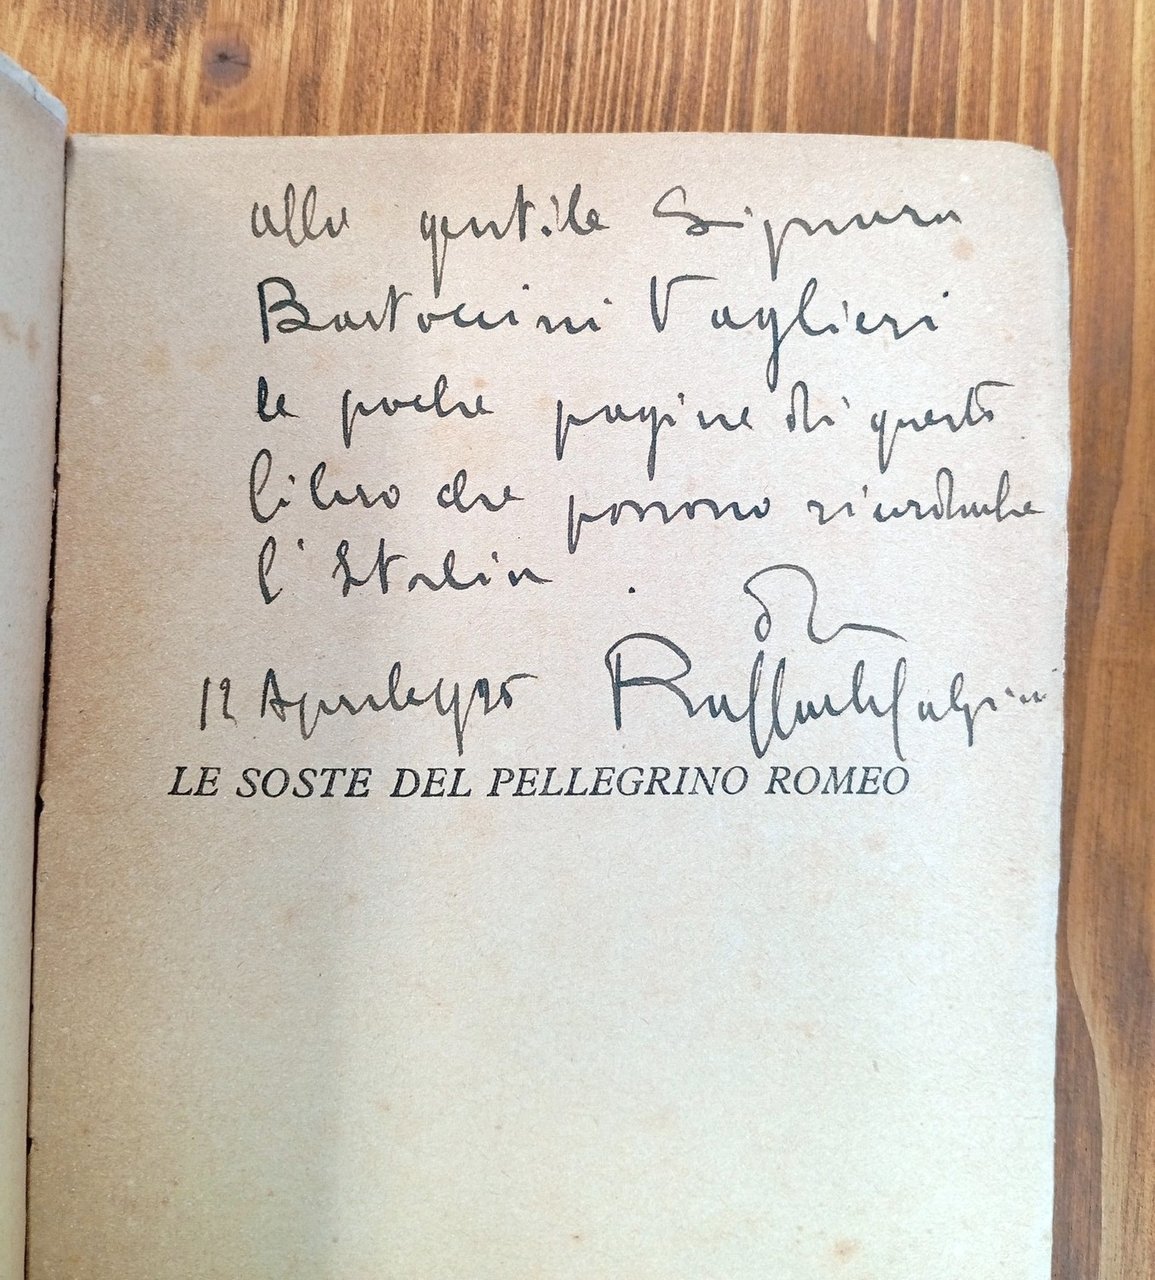 alla gentile Signora
Bartoccini Vaglieri
le poche pagine di questo
libro che possono ricordarle
l'Italia .
Raffaele Calzini
12 Aprile 1935
LE SOSTE DEL PELLEGRINO ROMEO